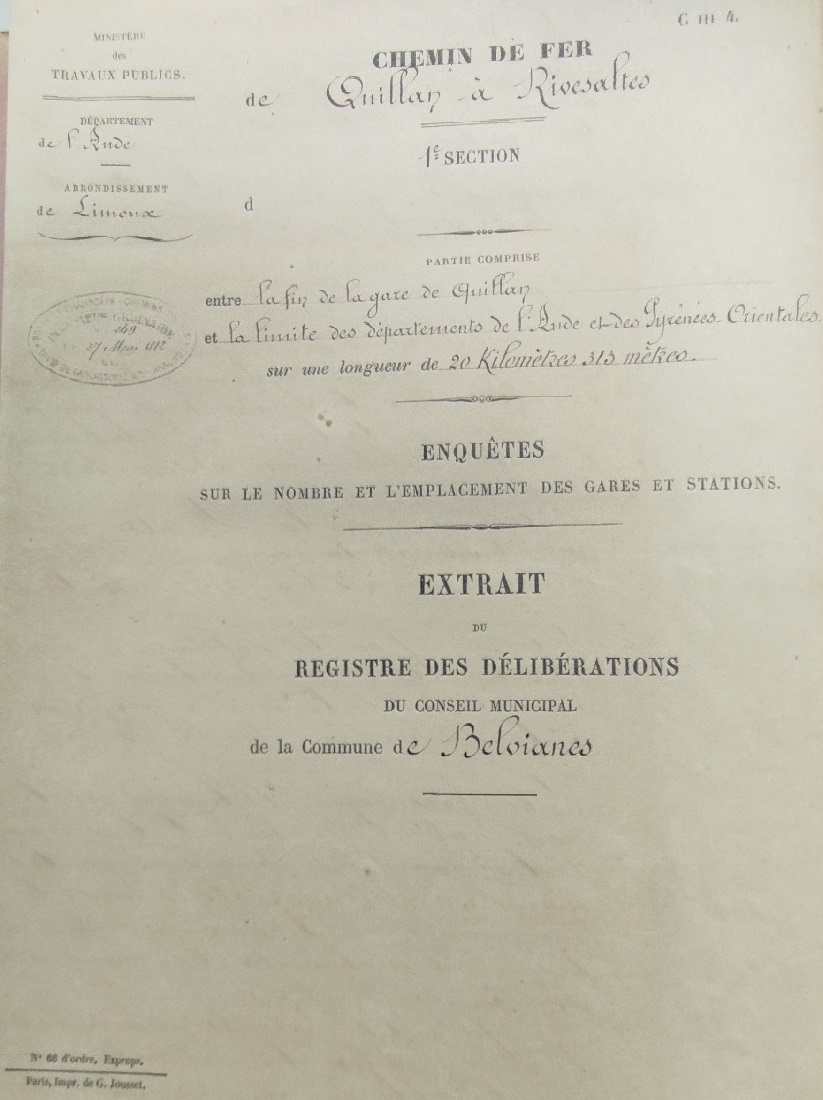 C III 4.
MINISTÈRE
des
TRAVAUX PUBLICS.
DÉPARTEMENT
de l'Aude
ARRONDISSEMENT
de Limoux
CHEMIN DE FER
de Quillan à Rivesaltes
1e SECTION
d
PARTIE COMPRISE
entre la fin de la gare de Quillan
et la limite des départements de l'Aude et des Pyrénées-Orientales
sur une longueur de 20 Kilomètres 313 mètres.
ENQUÊTES
SUR LE NOMBRE ET L'EMPLACEMENT DES GARES ET STATIONS.
EXTRAIT
DU
REGISTRE DES DÉLIBÉRATIONS
DU CONSEIL MUNICIPAL
de la Commune de Belvianes
N° 66 d'ordre. Expropr.
Paris, Impr. de G. Jousset.